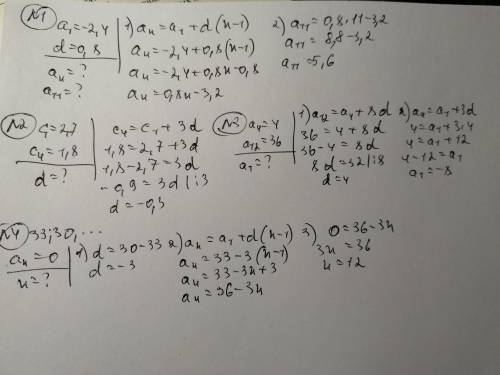 №1
a₁=-2,4
d=0,8
aₙ=?
a₁₁=?
1) aₙ=a₁+d(n-1)
aₙ=-2,4+0,8(n-1)
aₙ=-2,4+0,8n-0,8
aₙ=0,8n-3,2
2) a₁₁=0,8·11-3,2
a₁₁=8,8-3,2
a₁₁=5,6
№2
c₁=2,7
c₄=1,8
d=?
c₄=c₁+3d
1,8=2,7+3d
1,8-2,7=3d
-0,9=3d |:3
d=-0,3
№3
a₄=4
a₁₂=36
a₁=?
1) a₁₂=a₄+8d
36=4+8d
36-4=8d
8d=32 |:8
d=4
2) a₄=a₁+3d
4=a₁+3·4
4=a₁+12
4-12=a₁
a₁=-8
№4 33;30,...
aₙ=0
n=?
1) d=30-33
d=-3
2) aₙ=a₁+d(n-1)
aₙ=33-3(n-1)
aₙ=33-3n+3
aₙ=36-3n
3) 0=36-3n
3n=36
n=12